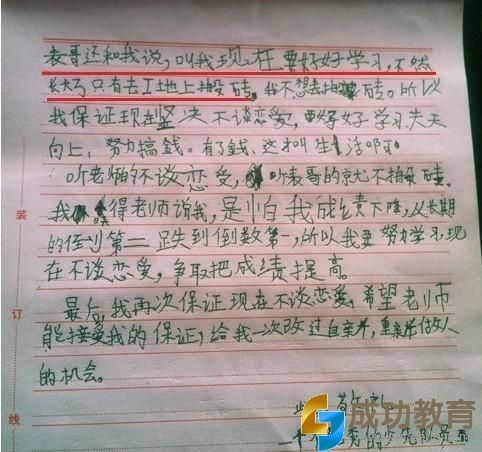 表哥还和我说，叫我现在要好好学习，不然
长大了只有去工地上搬砖。我不想去搬砖。所以
我保证现在坚决不谈恋爱，要好好学习天天
向上，努力搞錢。有了錢，这叫生活啊
听老师的不谈恋爱，听表哥的就不搬砖。
我 得老师说我，是怕我成绩下降，从长期
的倒第二跌到倒数第一，所以我要努力学习，现
在不谈恋爱，争取把成绩提高。
最后，我再次保证现在不谈恋爱，希望老师
能接受我的保证，给我一次改过自新，重新做人
的机会。
此 敬礼
一个 秀的少先队员
装
订
线
成功教育